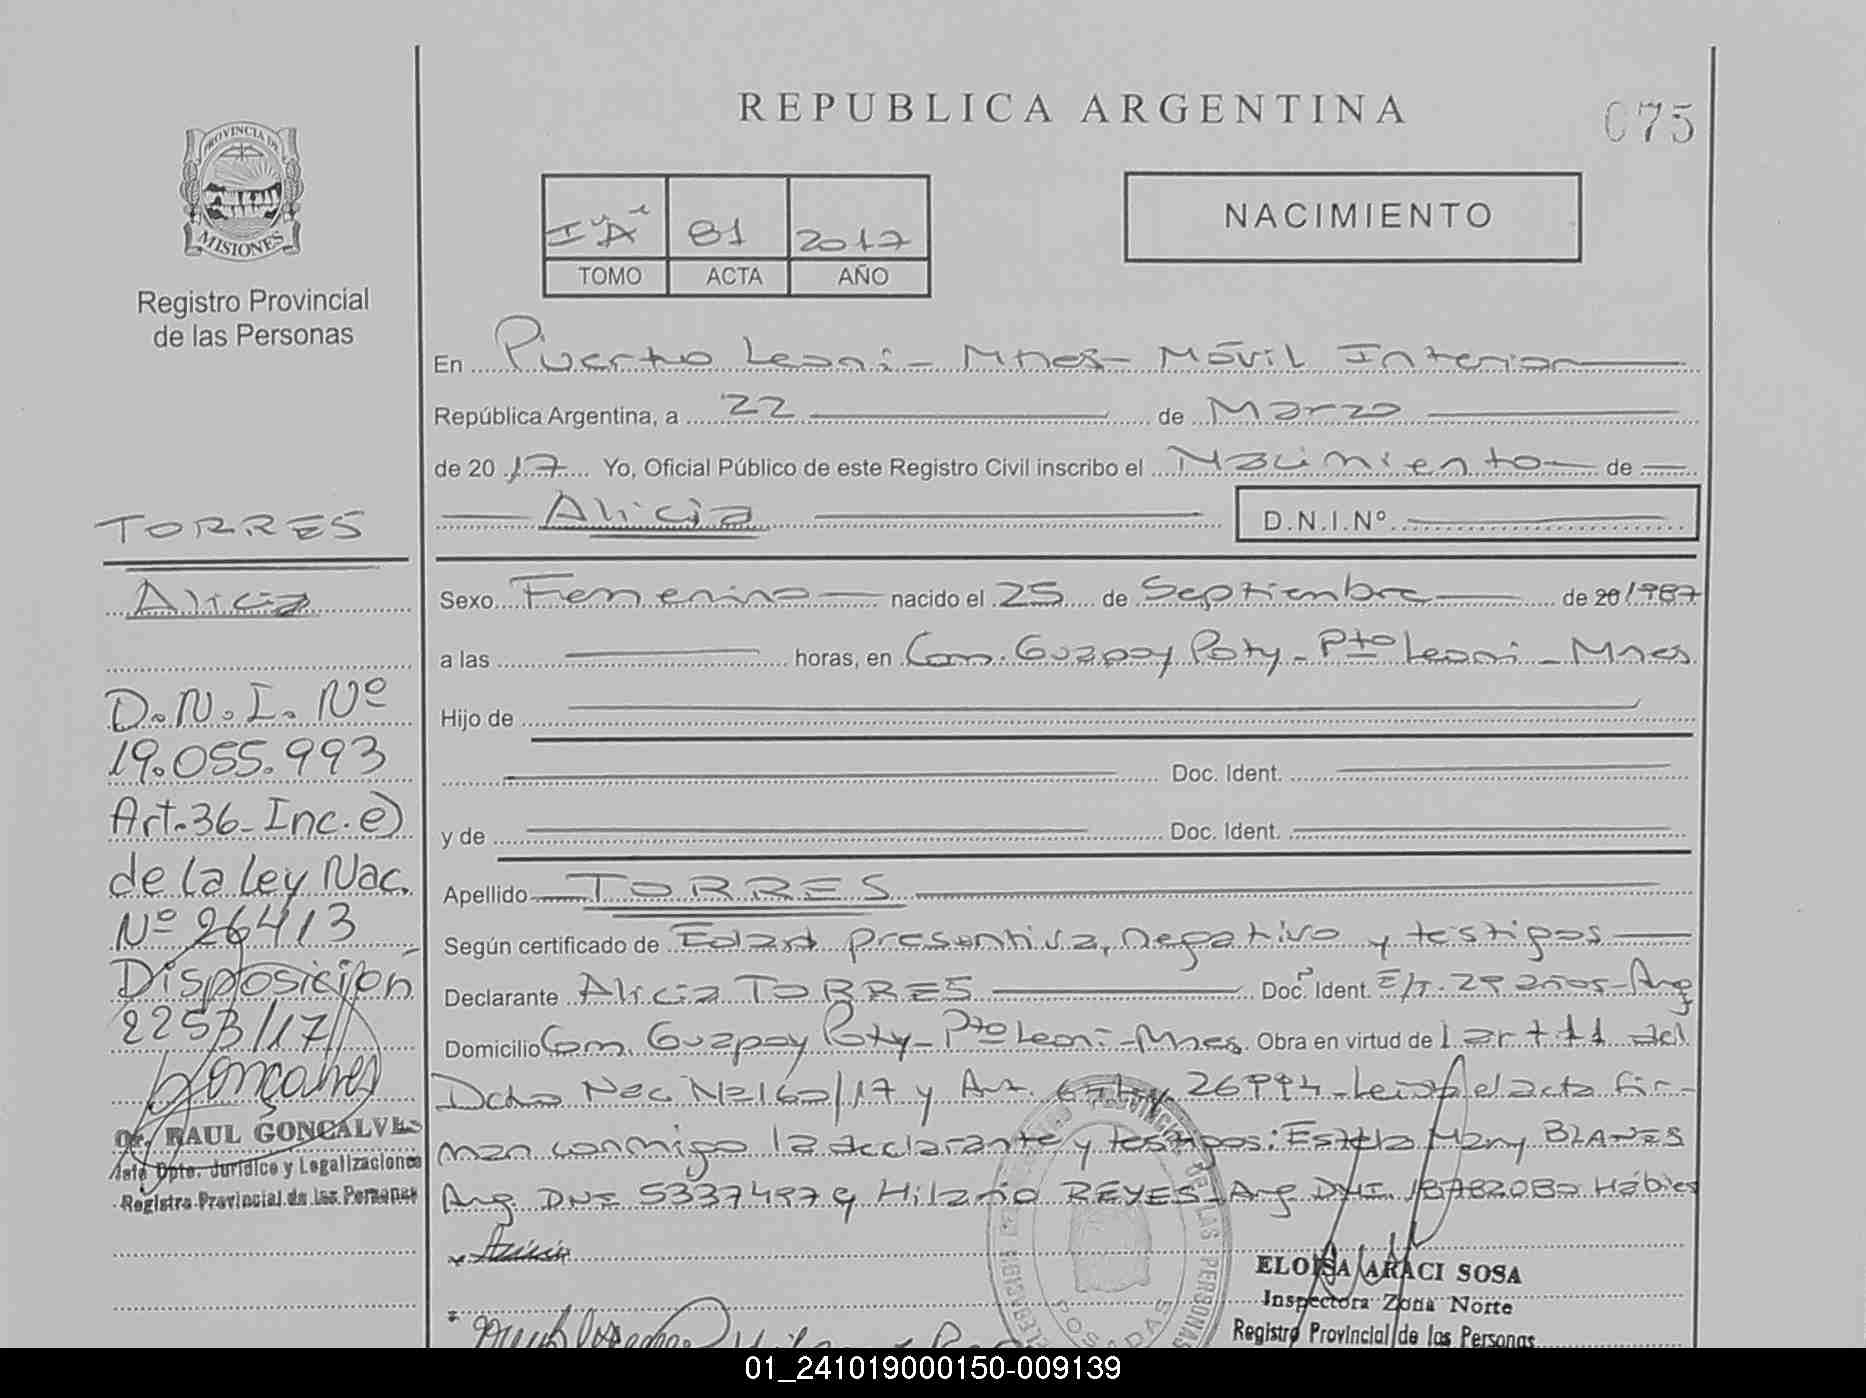 REPUBLICA ARGENTINA
075
PROVINCIA DE
MISIONES
Registro Provincial
de las Personas
81 2017
TOMO ACTA AÑO
NACIMIENTO
En Puerto Leoni - Mnes - Móvil Interior
República Argentina, a 22 de Marzo
de 2017 Yo, Oficial Público de este Registro Civil inscribo el Nacimiento de
Alicia
D.N.I.Nº
Sexo Femenino nacido el 25 de Septiembre de 20 1987
a las horas, en Com. Guapoy Poty - Pto Leoni - Mnes
Hijo de
Doc. Ident.
y de Doc. Ident.
Apellido TORRES
Según certificado de Edad presuntiva, negativo y testigos
Declarante Alicia TORRES Doc. Ident. E/T. 29 años - Arg
Domicilio Com. Guapoy Poty - Pto Leoni - Mnes. Obra en virtud de l art 11 del
Dcto Nac Nº 160/17 y Art. Ley 26994 - Leida el acta fir-
man conmigo la declarante y testigos: Estela Mary BLANES
Arg DNI 5337497 y Hilario REYES - Arg DNI. 18782080 Hábiles
TORRES
Alicia
D.N.I. Nº
19.055.993
Art. 36 - Inc. e)
de la Ley Nac.
Nº 26413
Disposición
2253/17
Gonçalves
Dr. RAUL GONCALVES
Jefe Dpto. Jurídico y Legalizaciones
Registro Provincial de las Personas
POSADAS
ELOISA ARACI SOSA
Inspectora Zona Norte
Registro Provincial de las Personas
01_241019000150-009139